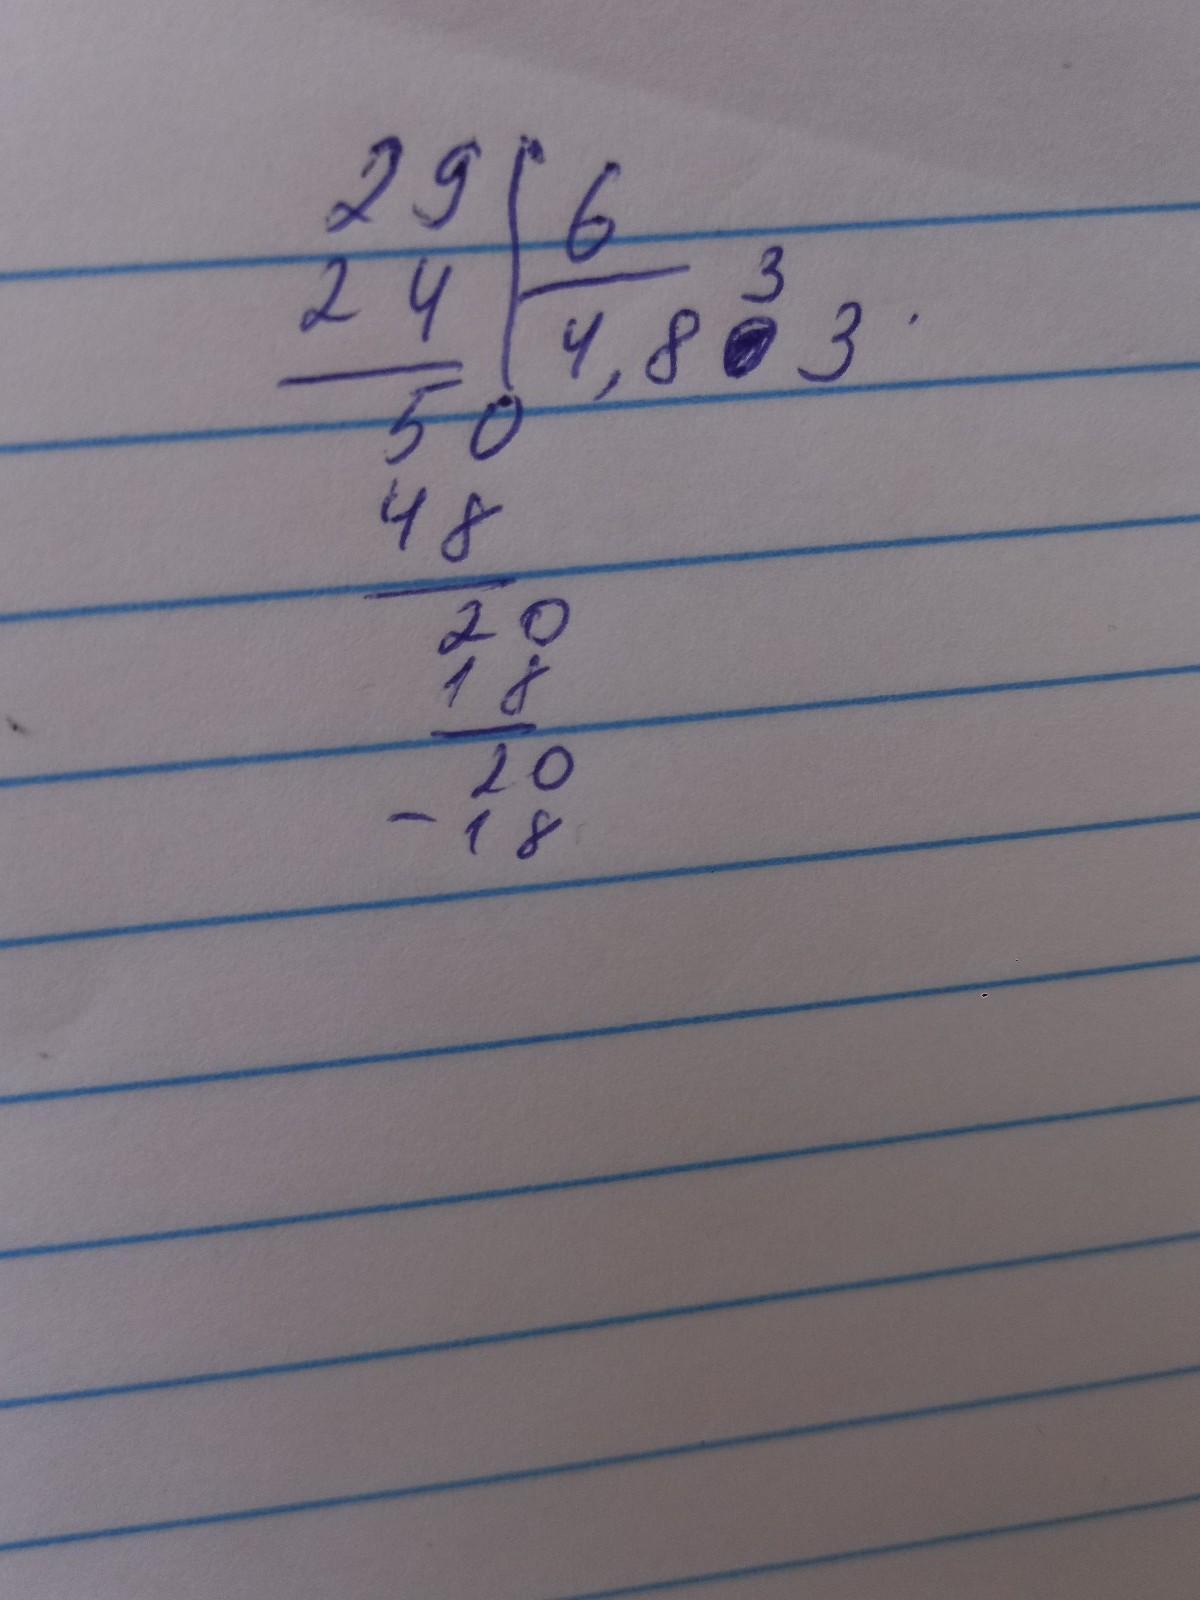 29 6
24 4,833
50
48
20
18
20
- 18